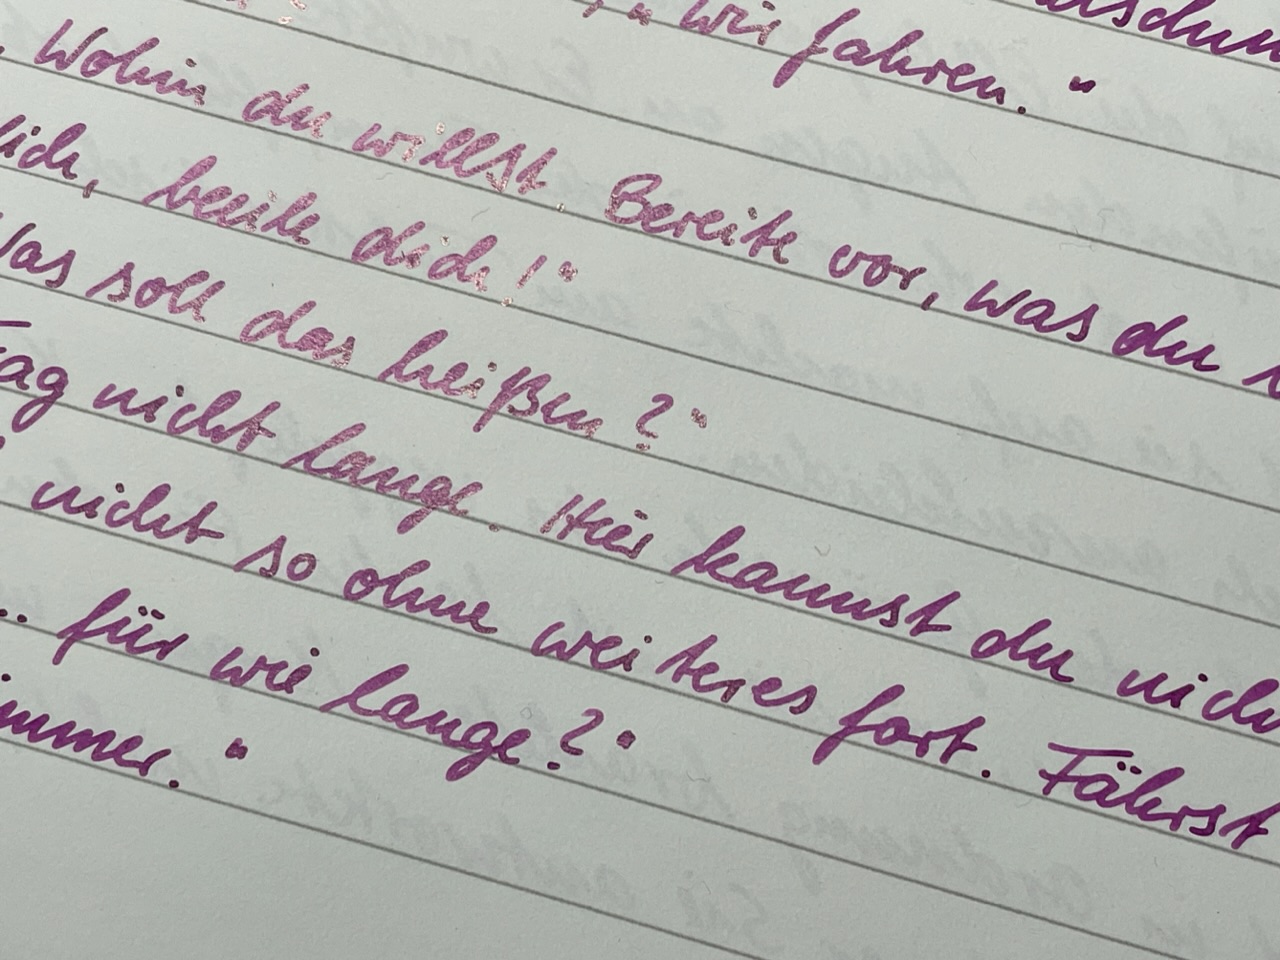 „Wir fahren.“
Wohin du willst. Bereite vor, was du
dich, beeile dich!“
Was soll das heißen?“
Tag nicht lange. Hier kannst du nich
nicht so ohne weiteres fort. Fährst
.. für wie lange?“
immer.“